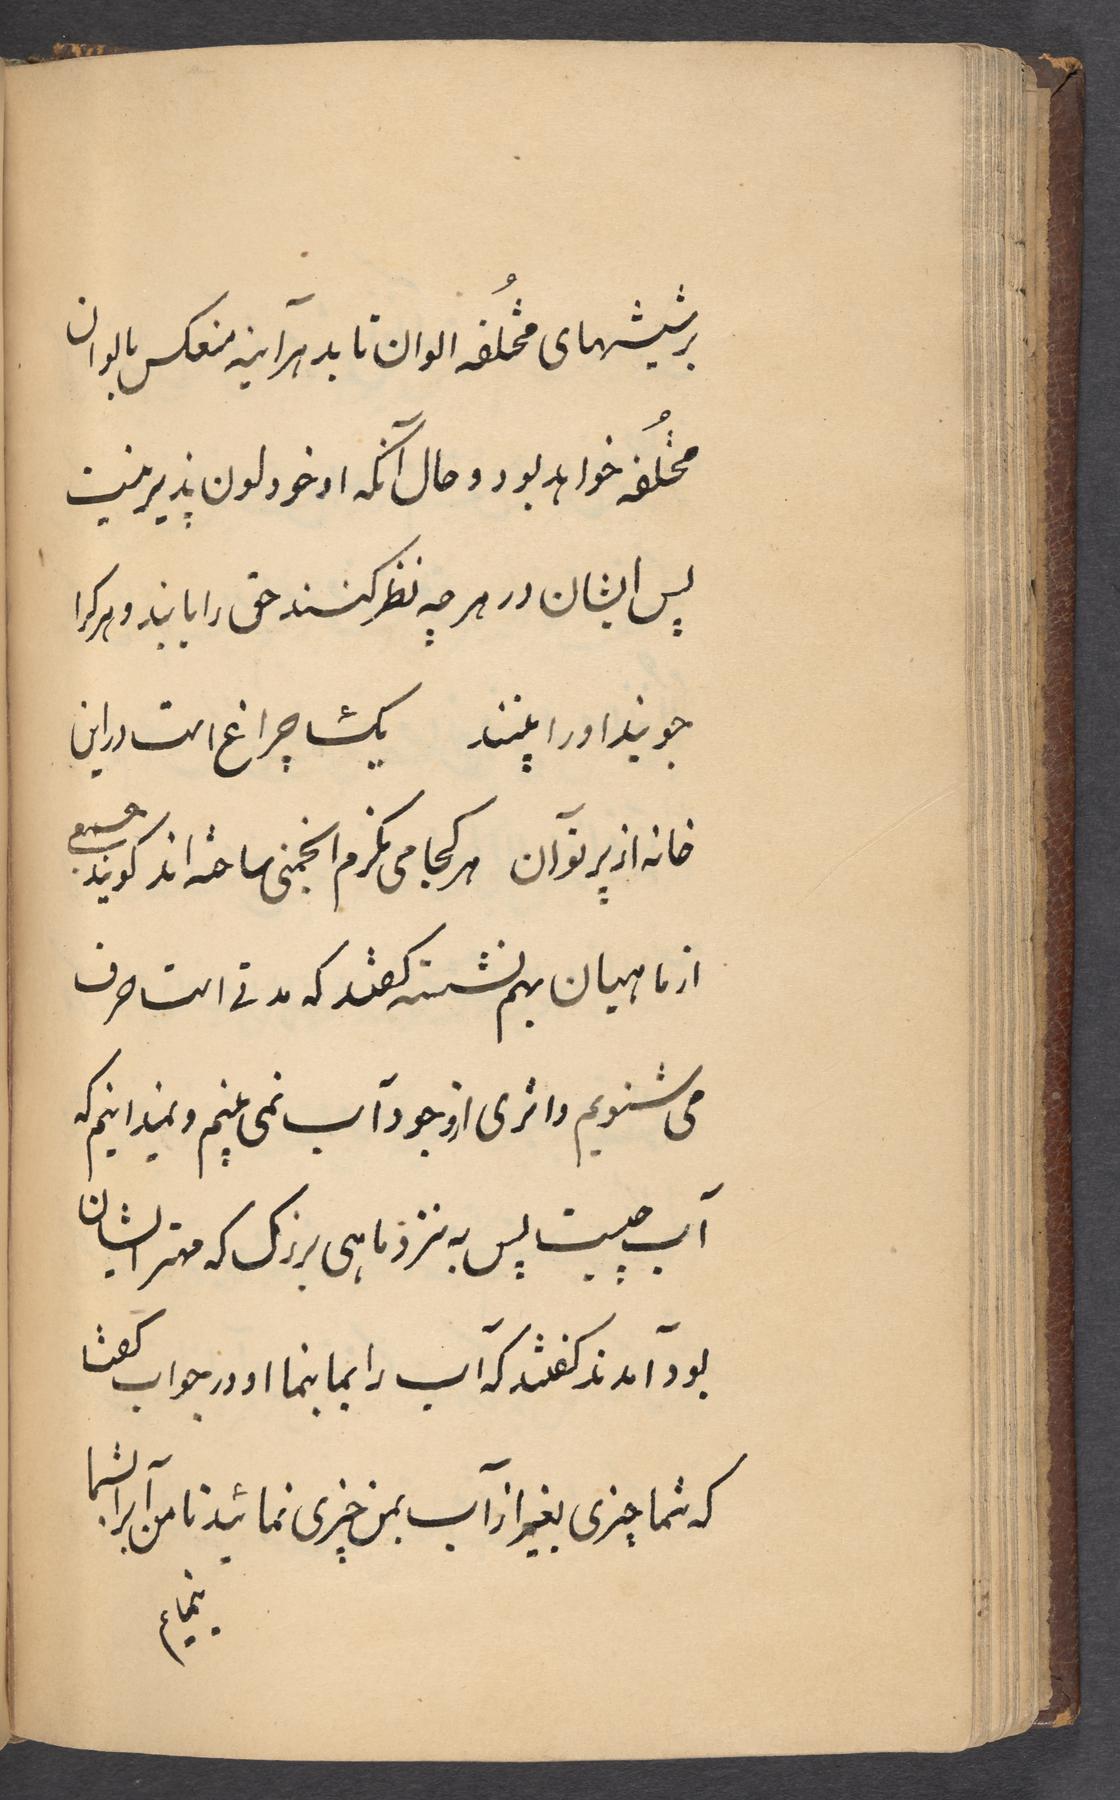 بر شیشهای مختُلفه الوان تابد هرآینه منعکس بالوان
مختُلفه خواهد بود و حال آنکه او خود لون پذیر نیست
پس ایشان در هر چه نظر کنند حق را یابند و هر کرا
جویند او را بینند یک چراغ است در این
خانه از پرتو آن هر کجا می نگرم انجمنی ساخته اند کویند جمعی
از ماهیان بهم نشسته کفتند که مدتی است حرف
می شنویم و اثری از وجود آب نمی بینم و نمیدانیم که
آب چیست پس به نزد ماهی بزرک که مهتر ایشان
بود آمدند کفتند که آب را بما بنما او در جواب کفت
که شما چیزی بغیر از آب بمن چیزی نمائید تا من آبرا بشما
بنمایم